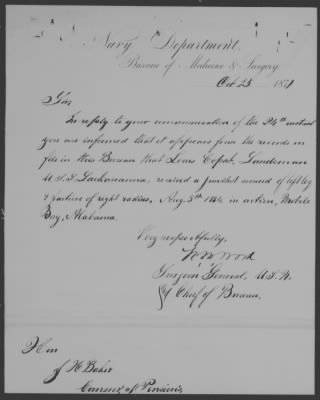 Navy Department.
Bureau of Medicine & Surgery
Oct 25 1871
Sir
In reply to your communication of the 24th instant
you are informed that it appears from the records on
file in this Bureau that Louis Copat, Landsman
U.S.S. Lackawanna, received a gunshot wound of left leg
& fracture of right radius, Aug. 5th 1864 in action, Mobile
Bay, Alabama.
Very respectfully,
W M Wood
Surgeon General, U.S.N.
& Chief of Bureau.
Hon
J H Baker
of Pensions